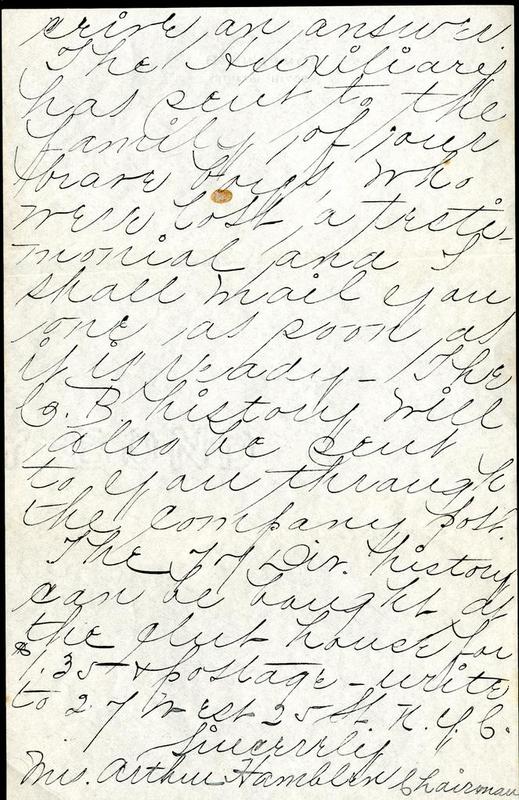 ceive an answer.
The Auxiliary
has sent to the
family of your
brave boys, who
were lost a testi-
monial and I
shall mail you
one as soon as
it is ready - The
Co. B. history will
also be sent
to you through
the company post.
The 77 Div. history
can be bought at
the club house for
$1.35 + postage - write
to 27 West 25 St. N.Y.C.
Sincerely
Mrs. Arthur Hamblen Chairman